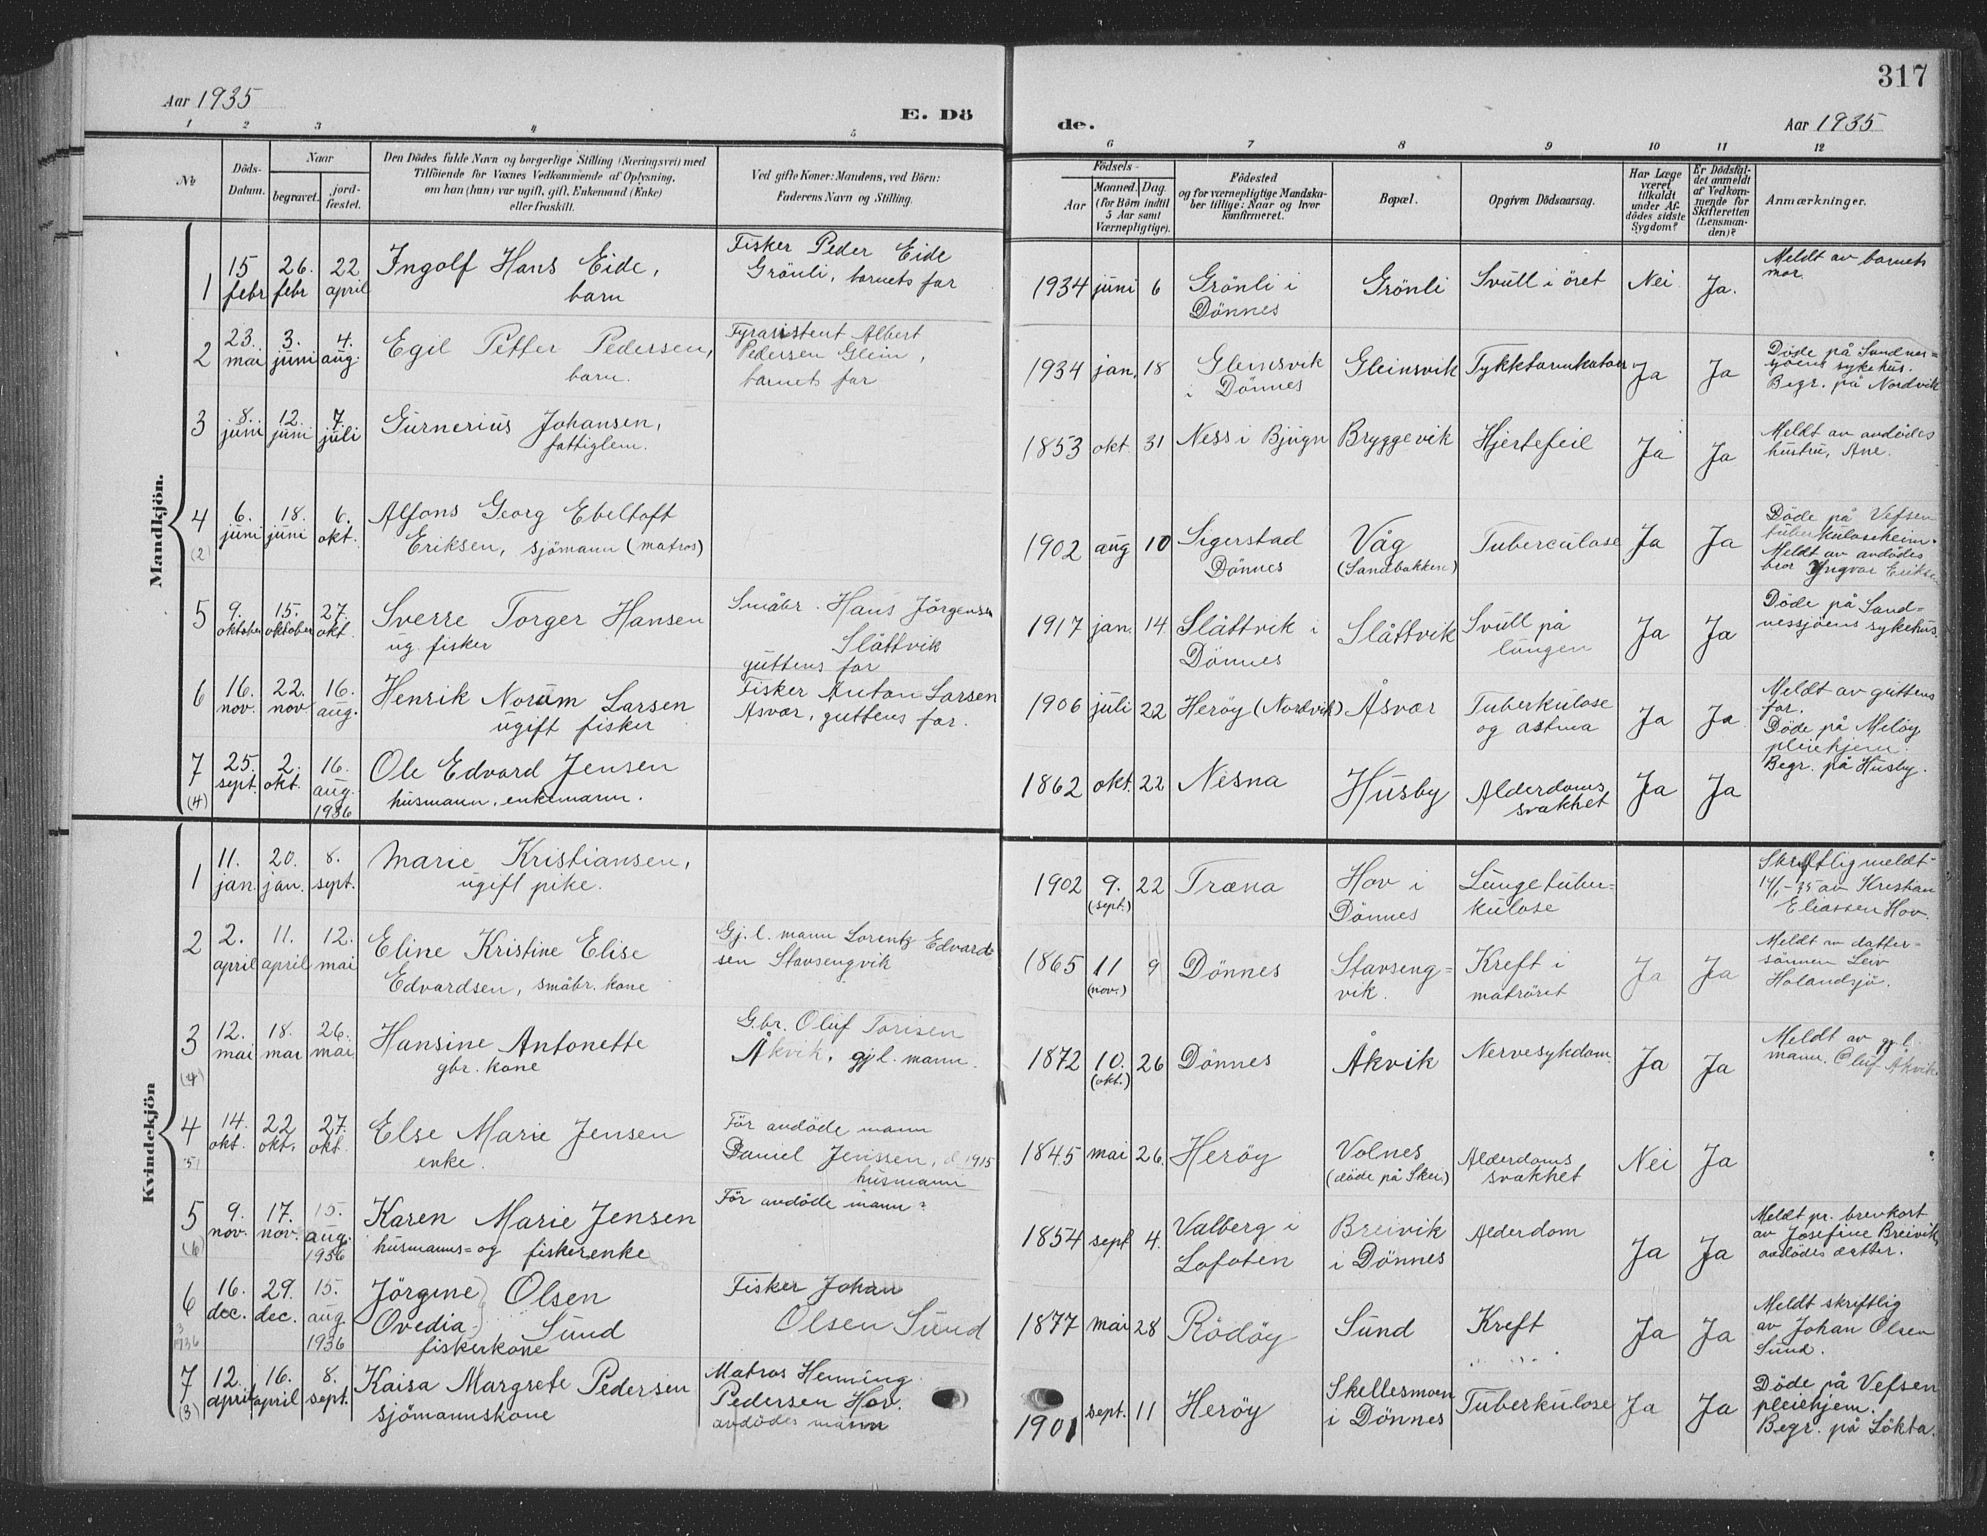 317
Aar 1935
E. Dö
de.
Aar 1935
1 2 3 4 5 6 7 8 9 10 11 12
No
Döds-
Datum.
Naar
begravet.
jord-
fæstet.
Den Dödes fulde Navn og borgerlige Stilling (Næringsvei) med
Tilföiende for Voxnes Vedkommende af Oplysning,
om han (hun) var ugift, gift, Enkemand (Enke)
eller fraskilt.
Ved gifte Koner: Mandens, ved Börn:
Faderens Navn og Stilling.
Födsels-
Aar
Maaned. Dag.
(for Börn indtil
5 Aar samt
Værnepligtige).
Födested
og for værnepligtige Mandska-
ber tillige: Naar og hvor
konfirmeret.
Bopæl.
Opgiven Dödsaarsag.
Har Læge
været
tilkaldt
under Af-
dödes sidste
Sygdom?
Er Dödsfal-
det anmeldt
af Vedkom-
mende for
Skifteretten
(Lensman-
den)?
Anmærkninger.
Mandkjön.
1 15 febr 26. febr 22 april Ingolf Hans Eide, Fisker Peder Eide 1934 juni 6 Grönli i Grönli Svull i öret Nei Ja. Meldt av barnets
barn Grönli, barnets far Dönnes mor
2 23. mai 3. juni 4. aug. Egil Petter Pedersen, Fyrasistent Albert 1934 jan. 18 Gleinsvik Gleinsvik Tykktarmkatarr Ja Ja Döde på Sandnes=
barn. Pedersen Glein, i Dönnes sjöens sykehus.
barnets far Begr. på Nordvik
3 8. juni 12. juni 7. juli Gurnerius Johansen, 1853 okt. 31 Ness i Bjugn Bryggevik Hjertefeil Ja Ja Meldt av avdödes
fattiglem. hustru, Ane.
4 6. juni 18. juni 6. okt. Alfons Georg Ebeltoft 1902 aug 10 Sigerstad Våg Tuberculose Ja Ja Döde på Vefsen
(2) Eriksen, sjömann (matros) Dönnes (Sandbakken) tuberkuloseheim.
Meldt av avdödes
bror Yngvar Eriksen
5 9. oktober 15. oktober 27. okt. Sverre Torger Hansen Småbr. Hans Jörgensen 1917 jan. 14. Slåttvik i Slåttvik Svull på Ja Ja Döde på Sand=
ug. fisker Slåttvik Dönnes lungen nessjöens sykehus.
guttens far
6 16. nov. 22. nov. 16. aug. Henrik Norum Larsen Fisker Anton Larsen 1906 juli 22 Heröy (Nordvik) Åsvær Tuberkulose Ja Ja Meldt av guttens
ugift fisker Åsvær, guttens far. og astma far.
7 25. sept. 2. okt. 16. aug. 1936 Ole Edvard Jensen 1862 okt. 22 Nesna Husby Alderdoms Ja Ja Döde på Melöy
(4) husmann, enkemann. svakhet pleiehjem.
Begr. på Husby.
Kvindekjön
1 11. jan. 20. jan. 8. sept. Marie Kristiansen, 1902 9. (sept.) 22 Træna Hov i Lungetuber= Skriftlig meldt
ugift pike. Dönnes kulose 14/1-35 av Kristian
Eliassen Hov.
2 2. april 11. april 12. mai Eline Kristine Elise Gj. l. mann Lorentz Edvard= 1865 11 (nov.) 9 Dönnes Stavseng= Kreft i Ja Ja Meldt av datter=
Edvardsen, småbr. kone sen Stavsengvik vik. matröret sönnen Leiv
Holandsjö.
3 12. mai 18. mai 26. mai Hansine Antonette G.br. Oluf Torisen 1872 10. (okt.) 26 Dönnes Åkvik Nervesykdom Ja Ja Meldt av gj.l.
(4) gbr. kone Åkvik, gj.l. mann. mann. Oluf Åkvik
4 14. okt. 22 okt. 27. okt. Else Marie Jensen För avdöde mann 1845 mai 26. Heröy Volnes Alderdoms Nei Ja
(5) enke. Daniel Jenssen, d. 1915 (döde på Skei) svakhet
husmann
5 9. nov. 17. nov. 15. aug. 1936 Karen Marie Jensen För avdöde mann? 1854 sept 4. Valberg i Breivik Alderdom Ja Ja Meldt pr. brevkort
(6) husmanns= og fiskerenke Lofoten i Dönnes av Josefine Breivik,
avdödes datter.
6 16. dec. 29. dec. 15. aug 1936 Jörgine Olsen Fisker Johan 1877 mai 28 Rödöy Sund Kreft Ja Ja Meldt skriftlig
3 1936 Ovedia Sund Olsen Sund av Johan Olsen
fiskerkone Sund.
7 12. april 16. april 8. sept. Kaisa Margrete Pedersen Matros Henning 1901 sept. 11 Heröy Skellesmoen Tuberkulose Ja Ja Döde på Vefsen
(3) sjömannskone Pedersen Hov. i Dönnes pleiehjem.
avdödes mann Begr. på Lökta.